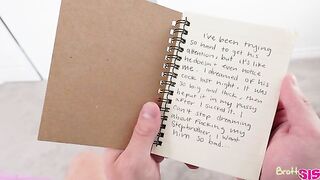 I've been trying
so hard to get his
attention, but it's like
he doesn't even notice
me. I dreamed of his
cock last night. It was
so big and thick, then
he put it in my pussy
after I sucked it. I
can't stop dreaming
about fucking my
Stepbrother, I want
him so bad...
SIS